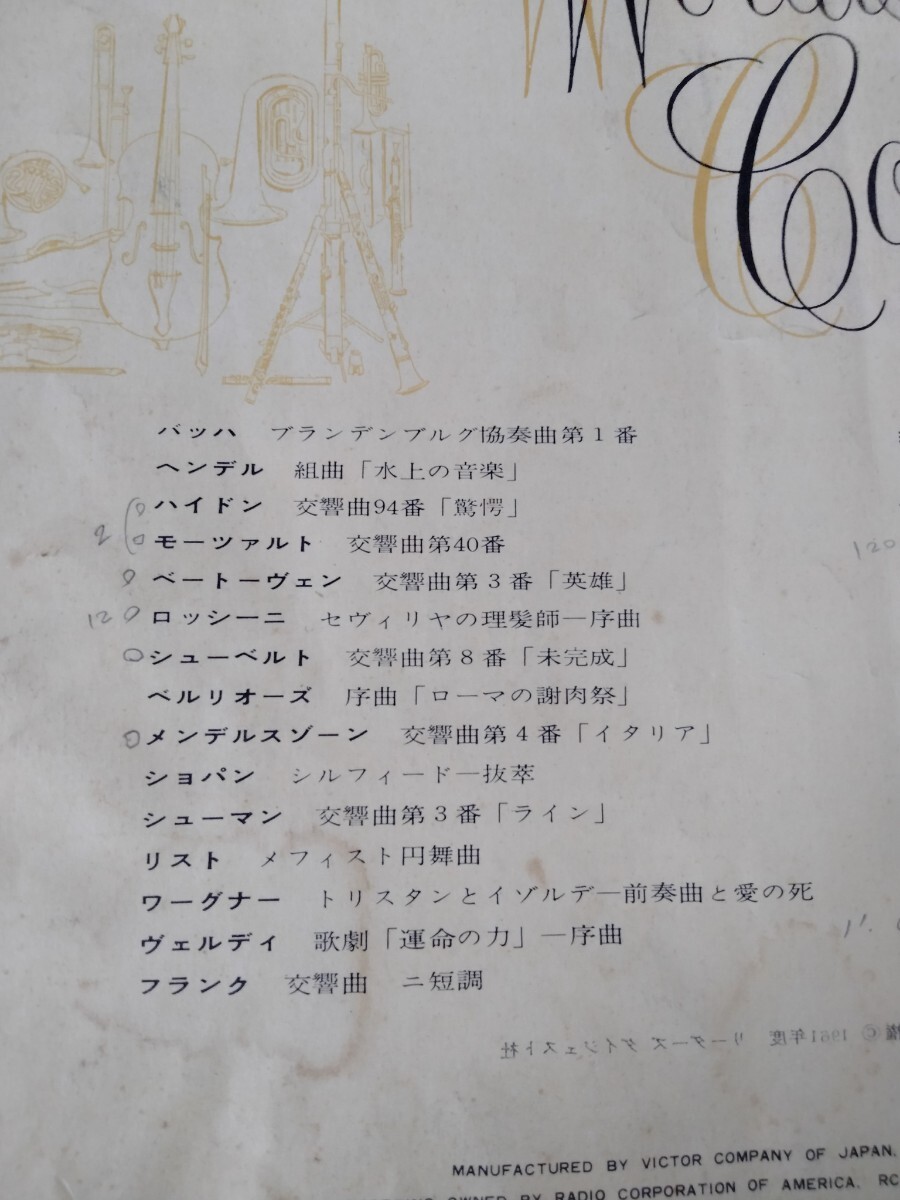 バッハ ブランデンブルグ協奏曲第1番
ヘンデル 組曲「水上の音楽」
ハイドン 交響曲94番「驚愕」
2
モーツァルト 交響曲第40番
120
ベートーヴェン 交響曲第3番「英雄」
12
ロッシーニ セヴィリヤの理髪師—序曲
シューベルト 交響曲第8番「未完成」
ベルリオーズ 序曲「ローマの謝肉祭」
メンデルスゾーン 交響曲第4番「イタリア」
ショパン シルフィード—抜萃
シューマン 交響曲第3番「ライン」
リスト メフィスト円舞曲
ワーグナー トリスタンとイゾルデ—前奏曲と愛の死
ヴェルディ 歌劇「運命の力」—序曲
フランク 交響曲 ニ短調
権 © 1961年度 リーダーズ ダイジェスト社
MANUFACTURED BY VICTOR COMPANY OF JAPAN.
OWNED BY RADIO CORPORATION OF AMERICA. RC